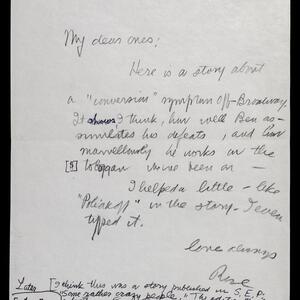 My dear ones;
Here is a story about
a "conversion" symptom off-Broadway.
It shows I think, how well Ben as-
similates his defeats, and how
marvellously he works on the
[5] we've been on —
I helped a little - like
"Polinkoff" in the story - I even
typed it.
Love always
Rose
Later [I think this was a story published in S.E.P.
Some rather crazy people. "The